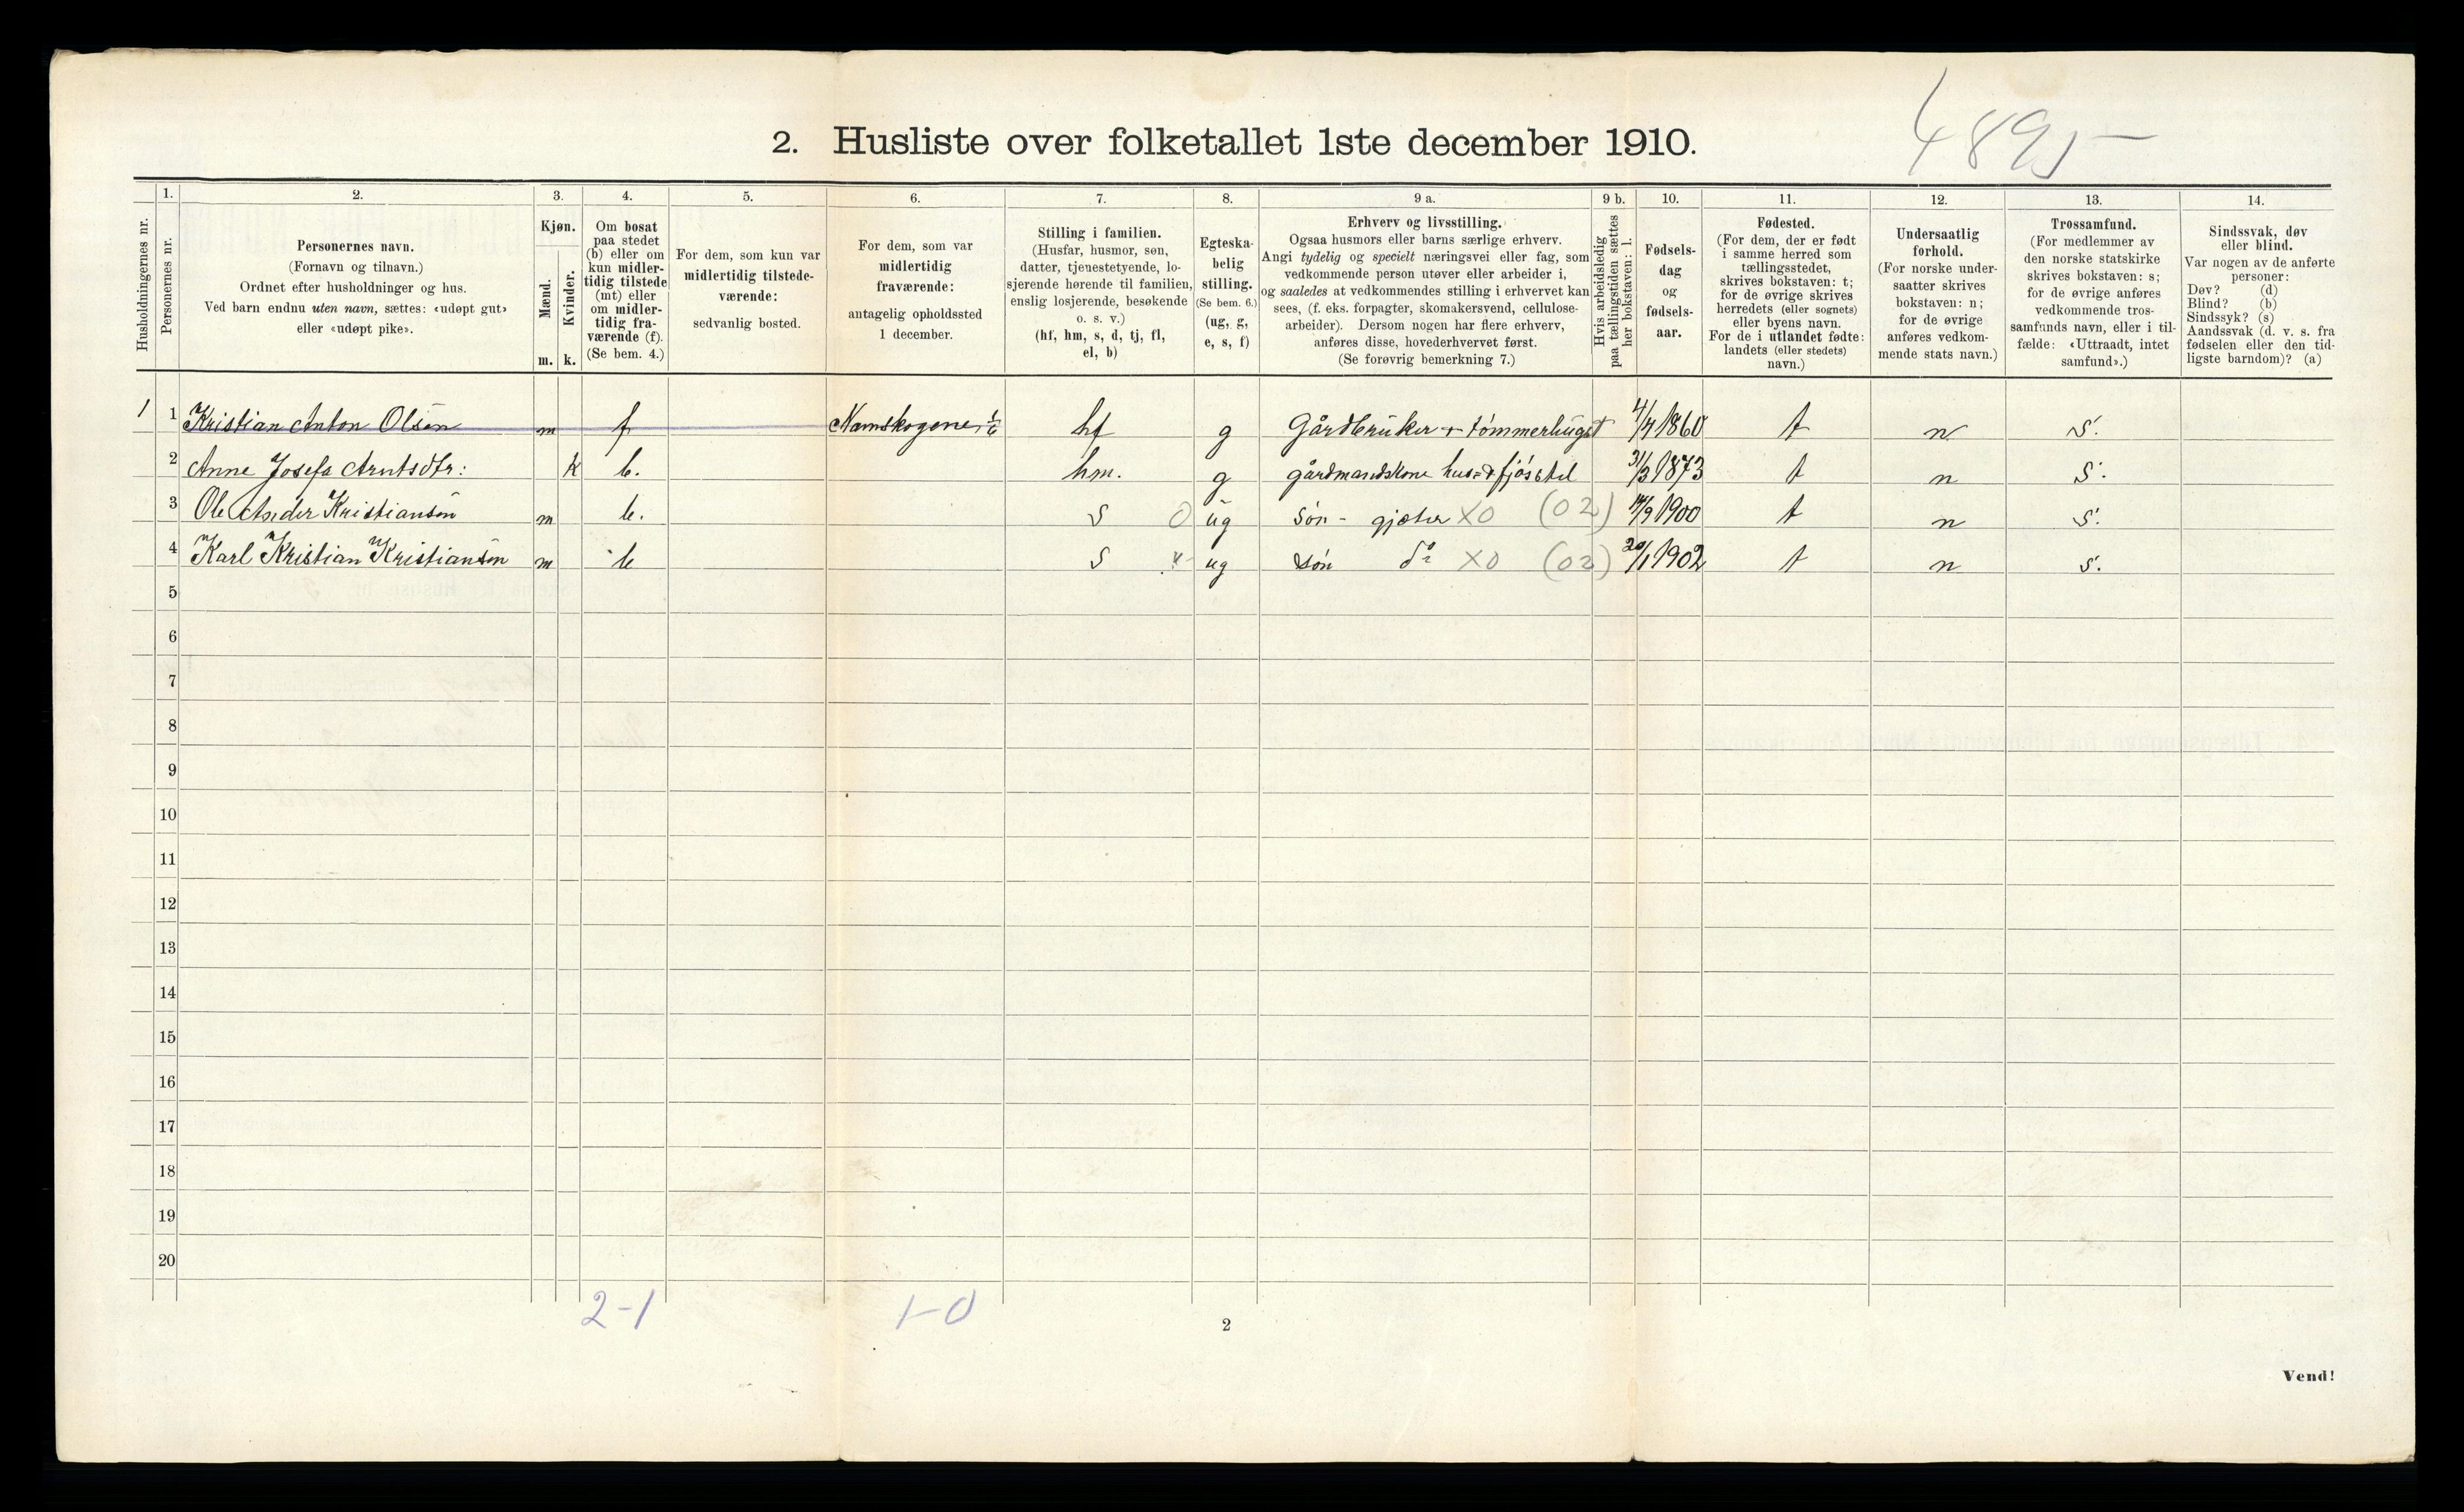 4895 —
2. Husliste over folketallet 1ste december 1910.
Husholdningernes nr.
1.
Personernes nr.
2.
Personernes navn.
(Fornavn og tilnavn.)
Ordnet efter husholdninger og hus.
Ved barn endnu uten navn, sættes: «udøpt gut»
eller «udøpt pike».
3.
Kjøn.
Mænd.
Kvinder.
m. k.
4.
Om bosat
paa stedet
(b) eller om
kun midler-
tidig tilstede
(mt) eller
om midler-
tidig fra-
værende (f).
(Se bem. 4.)
5.
For dem, som kun var
midlertidig tilstede-
værende:
sedvanlig bosted.
6.
For dem, som var
midlertidig
fraværende:
antagelig opholdssted
1 december.
7.
Stilling i familien.
(Husfar, husmor, søn,
datter, tjenestetyende, lo-
sjerende hørende til familien,
enslig losjerende, besøkende
o. s. v.)
(hf, hm, s, d, tj, fl,
el, b)
8.
Egteska-
belig
stilling.
(Se bem. 6.)
(ug, g,
e, s, f)
9 a.
Erhverv og livsstilling.
Ogsaa husmors eller barns særlige erhverv.
Angi tydelig og specielt næringsvei eller fag, som
vedkommende person utøver eller arbeider i,
og saaledes at vedkommendes stilling i erhvervet kan
sees, (f. eks. forpagter, skomakersvend, cellulose-
arbeider). Dersom nogen har flere erhverv,
anføres disse, hovederhvervet først.
(Se forøvrig bemerkning 7.)
9 b.
Hvis arbeidsledig
paa tællingstiden sættes
her bokstaven: l.
10.
Fødsels-
dag
og
fødsels-
aar.
11.
Fødested.
(For dem, der er født
i samme herred som
tællingsstedet,
skrives bokstaven: t;
for de øvrige skrives
herredets (eller sognets)
eller byens navn.
For de i utlandet fødte:
landets (eller stedets)
navn.)
12.
Undersaatlig
forhold.
(For norske under-
saatter skrives
bokstaven: n;
for de øvrige
anføres vedkom-
mende stats navn.)
13.
Trossamfund.
(For medlemmer av
den norske statskirke
skrives bokstaven: s;
for de øvrige anføres
vedkommende tros-
samfunds navn, eller i til-
fælde: «Uttraadt, intet
samfund».)
14.
Sindssvak, døv
eller blind.
Var nogen av de anførte
personer:
Døv? (d)
Blind? (b)
Sindssyk? (s)
Aandssvak (d. v. s. fra
fødselen eller den tid-
ligste barndom)? (a)
1 1 Kristian Anton Olsen m f Namskogene hf g Gårdbruker + tømmerhugst 4/4 1860 t n s.
2 Anne Josefa Arntsdtr: k b. hm. g gårdmandskone hus= & fjøsstel 31/3 1873 t n s.
3 Ole Ander Kristiansen m b. s 0 ug søn - gjæter X0 (02) 14/9 1900 t n s.
4 Karl Kristian Kristiansen m b s ug søn do X0 (02) 20/1 1902 t n s.
5
6
7
8
9
10
11
12
13
14
15
16
17
18
19
20
2-1 1-0
2
Vend!